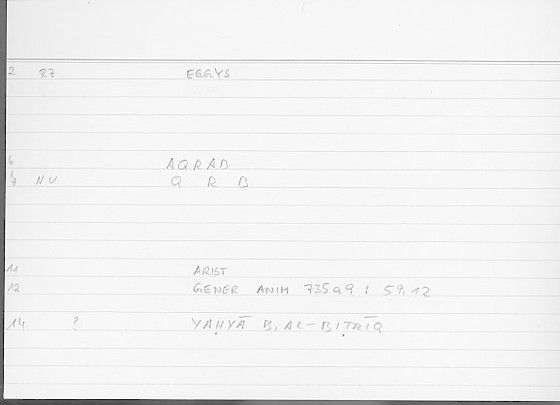 2 RZ EGGYS
6 AQRAB
7 NV Q R B
11 ARIST
12 GENER ANIM 735a9 : 59,12
14 ? YAḤYĀ B. AL-BIṬRĪQ